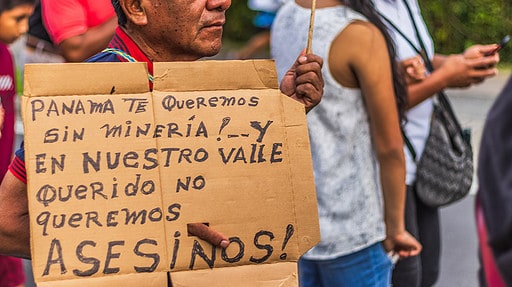 PANAMA TE QUEREMOS
SIN MINERÍA!--Y
EN NUESTRO VALLE
QUERIDO NO
QUEREMOS
ASESINOS!